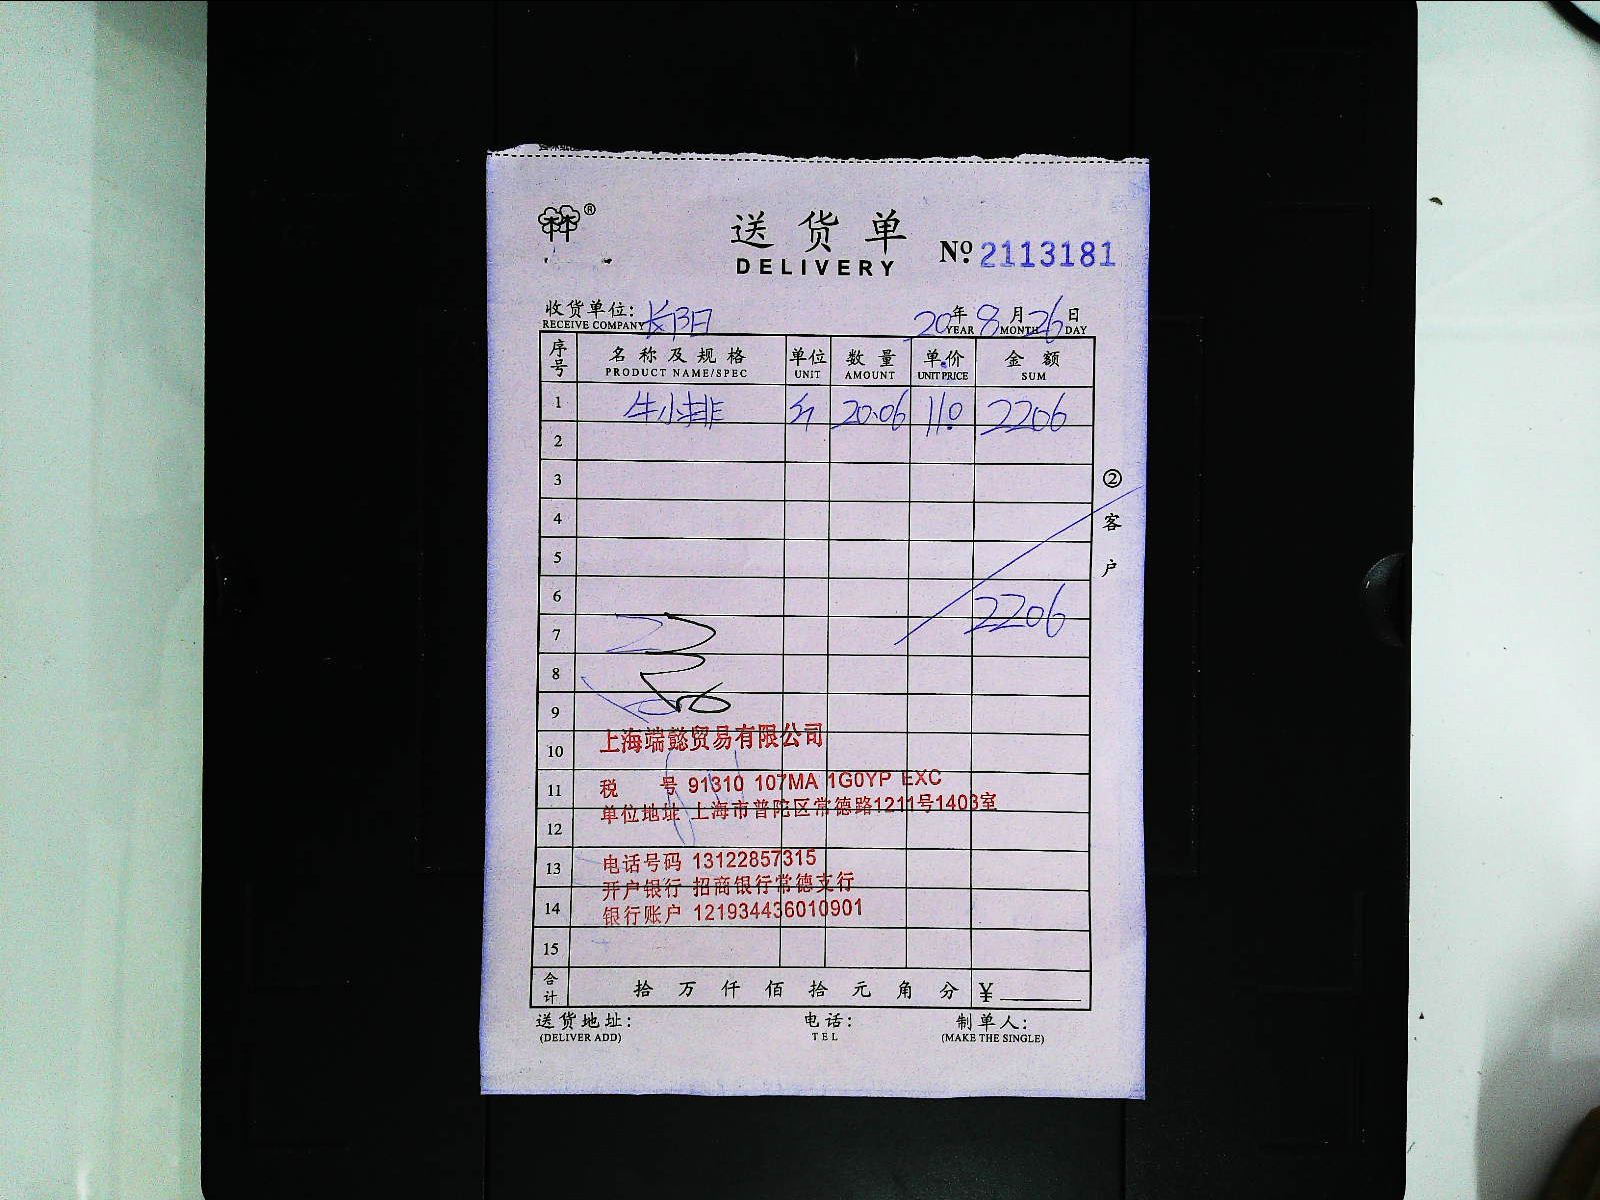 送货单 №2113181
DELIVERY
收货单位: 长阳 20年8月26日
RECEIVE COMPANY YEAR MONTH DAY
序号 名称及规格 单位 数量 单价 金额
PRODUCT NAME/SPEC UNIT AMOUNT UNIT PRICE SUM
1 牛小排 斤 20.06 110 2206
2
3
4
5
6 2206
7
8
9
10
11
12
13
14
15
② 客户
上海端懿贸易有限公司
税 号 91310 107MA 1G0YP EXC
单位地址 上海市普陀区常德路1211号1403室
电话号码 13122857315
开户银行 招商银行常德支行
银行账户 121934436010901
合计 拾 万 仟 佰 拾 元 角 分 ¥
送货地址: 电话: 制单人:
(DELIVER ADD) TEL (MAKE THE SINGLE)